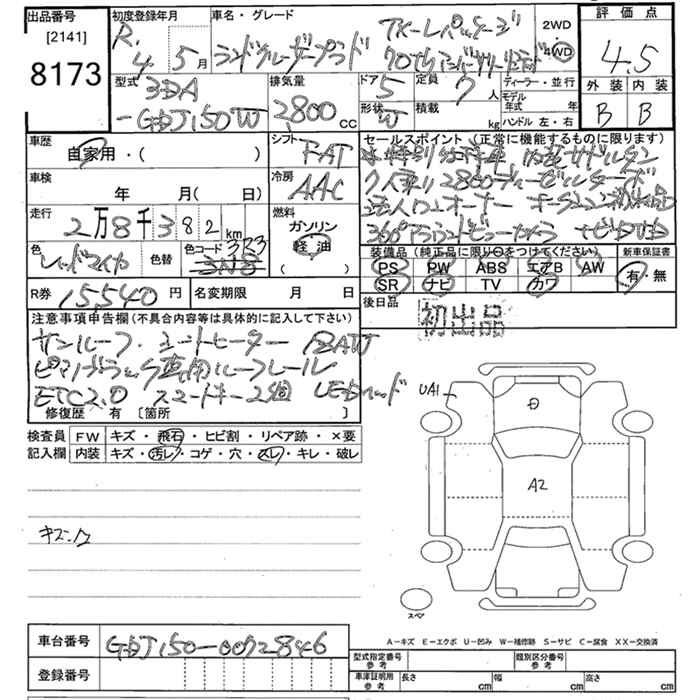 出品番号
[2141]
8173
初度登録年月
R. 4. 5月
車名・グレード
ランドクルーザープラド
TX-Lパッケージ
70thアニバーサリーリミテッド
2WD
4WD
評価点
4.5
外装 内装
B B
型式
3DA
-GDJ150W
排気量
2800 CC
ドア
5
定員
7人
形状
W
積載
kg
ディーラー・並行
モデル年式 年
ハンドル 左・右
車歴
自家用・( )
シフト
FAT
車検
年 月( 日)
冷房
AAC
走行
2万8千382km
燃料
ガソリン
軽油
( )
色
レッドマイカ
色替
色コード
3R3
セールスポイント(正常に機能するものに限ります)
7人乗り2800ディーゼルターボ
法人ワンオーナー
装備品(純正品に限り○をつけてください)
PS PW ABS エアB AW
SR ナビ TV カワ
新車保証書
有・無
R券 15540円
名変期限 月 日
後日品
初出品
注意事項申告欄(不具合内容等は具体的に記入して下さい)
サンルーフ シートヒーター
ルーフレール
ETC2.0 スマートキー2個 LEDヘッド
修復歴 有 〔箇所 〕
検査員
記入欄
FW キズ・飛石・ヒビ割・リペア跡・×要
内装 キズ・汚レ・コゲ・穴・スレ・キレ・破レ
UA1
A2
スペア
A-キズ E-エクボ U-凹み W-補修跡 S-サビ C-腐食 XX-交換済
車台番号 GDJ150-0072846
登録番号
型式指定番号
参考
類別区分番号
参考
車庫証明用
参考
長さ cm 幅 cm 高さ cm